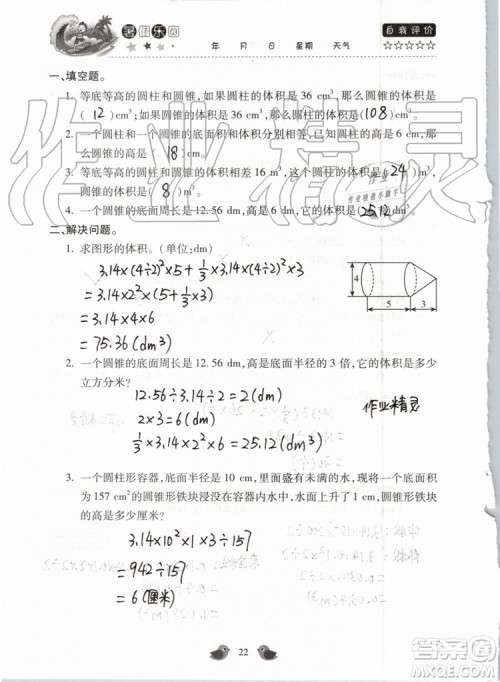 暑假乐园
年 月 日 星期 天气
自我评价
☆☆☆☆☆
一、填空题。
1. 等底等高的圆柱和圆锥,如果圆柱的体积是 36 cm³,那么圆锥的体积是
( 12 )cm³;如果圆锥的体积是 36 cm³,圆柱的体积是( 108 )cm³。
2. 一个圆柱和一个圆锥的底面积和体积分别相等,已知圆柱的高是 6 cm,那
么圆锥的高是( 18 )cm。
3. 等底等高的圆柱和圆锥体积相差 16 m³,这个圆柱的体积是( 24 )m³,圆
锥的体积是( 8 )m³。
4. 一个圆锥的底面周长是 12.56 dm,高是 6 dm,它的体积是( 25.12 )dm³。
二、解决问题。
1. 求图形的体积。(单位:dm)
3.14×(4÷2)²×5+1/3×3.14×(4÷2)²×3
= 3.14×2²×(5+1/3×3)
= 3.14×4×6
= 75.36(dm³)
4
5 3
2. 一个圆锥的底面周长是 12.56 dm,高是底面半径的 3 倍,它的体积是多少
立方分米?
12.56÷3.14÷2=2(dm)
2×3=6(dm)
1/3×3.14×2²×6=25.12(dm³)
作业精灵
3. 一个圆柱形容器,底面半径是 10 cm,里面盛有未满的水,现将一个底面积
为 157 cm²的圆锥形铁块浸没在容器内水中,水面上升了 1 cm,圆锥形铁块
的高是多少厘米?
3.14×10²×1×3÷157
= 942÷157
= 6(厘米)
22
作业精灵
答案圈